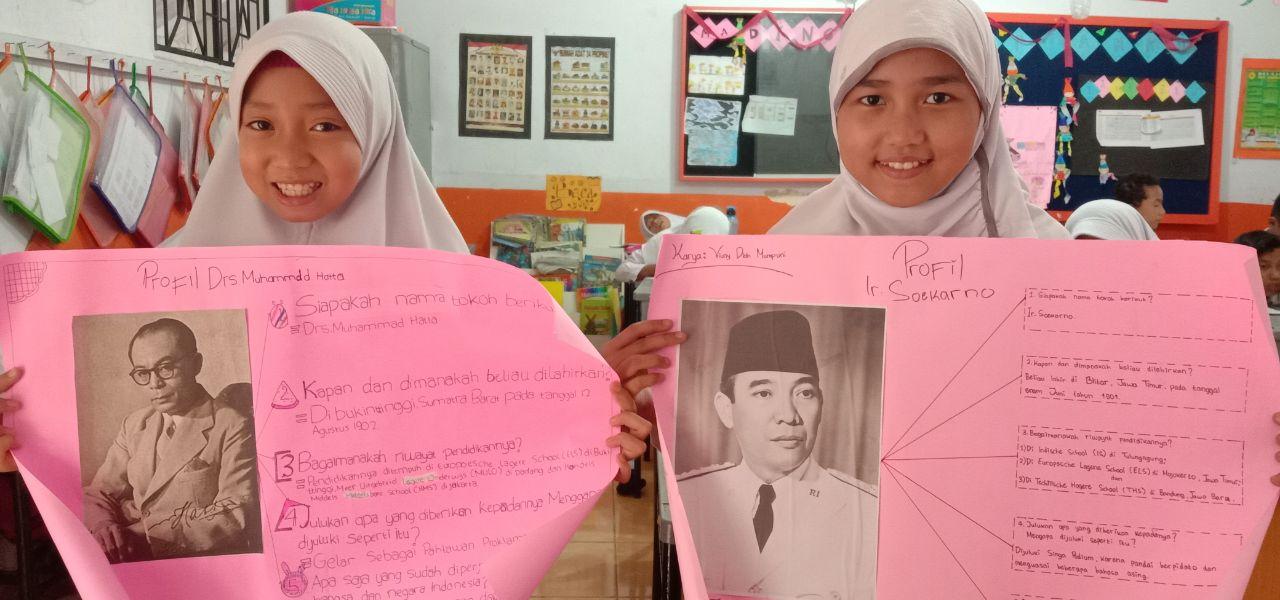 MADING
Profil Drs Muhammdd Hatta
Siapakah nama tokoh beriku
= Drs. Muhammad Hatta
2 Kapan dan dimanakah beliau dilahirkan?
= Di bukinggi, Sumatra Barat pada tanggal 12
Agustus 1902.
3 Bagaimanakah riwayat pendidikannya?
= Pendidikannya ditempuh di Europoesche Lagere School (ELS) di Buki
tinggi, Meer Uitgebreid Lagere Onderwijs (MULO) di padang dan Handels
Middelbare School (HMS) di jakarta.
4 Julukan apa yang diberikan kepadannya Mengapa
dijuluki Seperti Itu?
= Gelar Sebagai Pahlawan Proklam
5 Apa saja yang sudah diper
bangsa dan negara Indonesia?
Hatta
Karya: Viny Diah Mumpuni
Profil
Ir. Soekarno
1. Siapakah nama tokoh berikut?
Ir. Soekarno.
2. Kapan dan dimanakah beliau dilahirkan?
Beliau lahir di Blitar, Jawa Timur, pada tanggal
enam Juni tahun 1901.
3. Bagaimanakah riwayat pendidikannya?
1) Di Indische School (IS) di Tulungagung;
2) Di Europesche Lagere School (ELS) di Mojokerto, Jawa Timur;
dan
3) Di Techische Hogere School (THS) di Bandung, Jawa Barat.
4. Julukan apa yang diberikan kepadanya?
Mengapa dijuluki seperti itu?
Dijuluki Singa Podium, karena pandai berpidato dan
menguasai beberapa bahasa asing.
RI